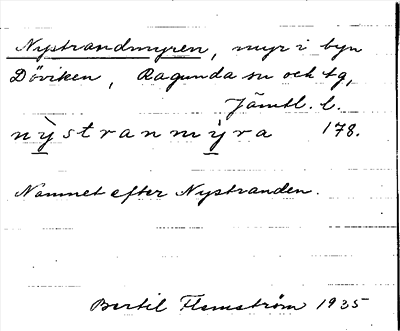 Nystrandmyren, myr i byn
Döviken, Ragunda sn och tg,
Jämtl. l.
nỳstranmỳra 178.
Namnet efter Nystranden.
Bertil Flemström 1935